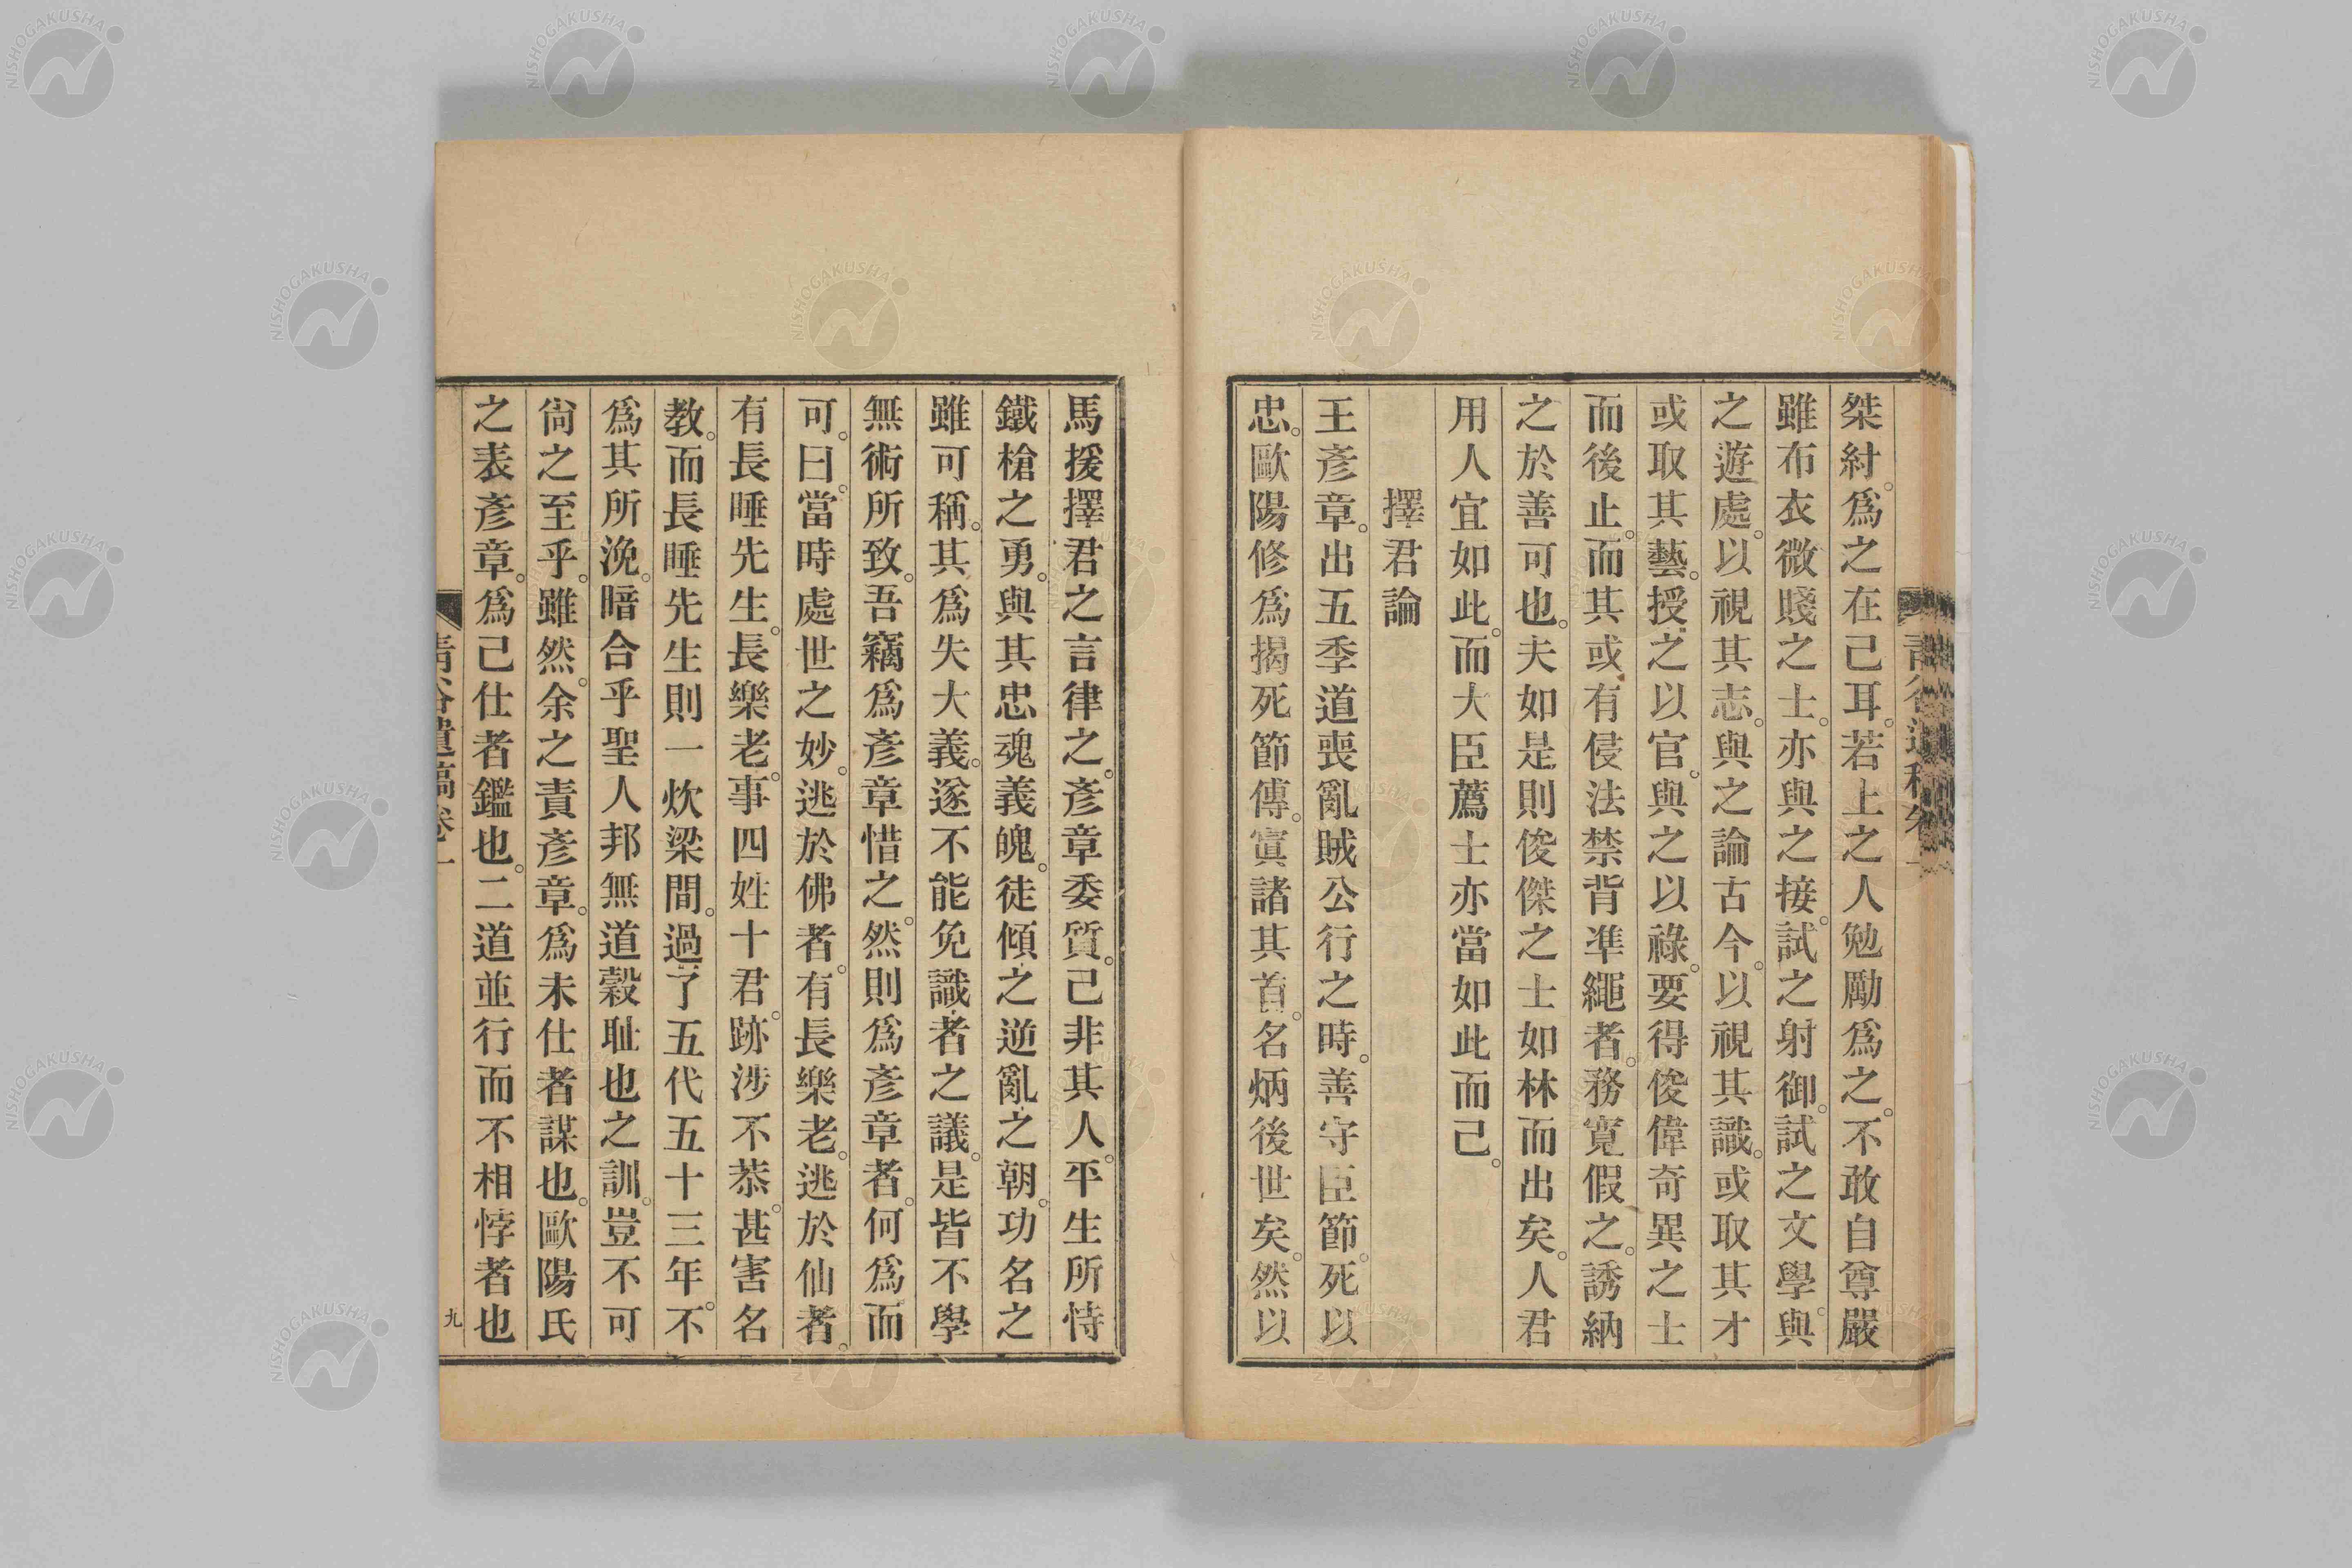 桀紂。爲之在己耳。若上之人勉勵爲之。不敢自尊嚴
雖布衣微賤之士。亦與之接。試之射御。試之文學。與
之遊處。以視其志。與之論古今。以視其識。或取其才
或取其藝。授之以官。與之以祿。要得俊偉奇異之士
而後止。而其或有侵法禁背準繩者。務寬假之。誘納
之於善可也。夫如是則俊傑之士如林而出矣。人君
用人宜如此。而大臣薦士亦當如此而己。
擇君論
王彥章。出五季道喪亂賊公行之時。善守臣節。死以
忠。歐陽修爲揭死節傳。寘諸其首。名炳後世矣。然以
馬援擇君之言律之。彥章委質。己非其人。平生所恃
鐵槍之勇。與其忠魂義魄。徒傾之逆亂之朝。功名之
雖可稱。其爲失大義。遂不能免識者之議。是皆不學
無術所致。吾竊爲彥章惜之。然則爲彥章者。何爲而
可。曰。當時處世之妙。逃於佛者。有長樂老。逃於仙者。
有長睡先生。長樂老。事四姓十君。跡涉不恭。甚害名
教。而長睡先生則一炊梁間。過了五代五十三年。不
爲其所浼。暗合乎聖人邦無道穀耻也之訓。豈不可
尙之至乎。雖然。余之責彥章。爲未仕者謀也。歐陽氏
之表彥章。爲己仕者鑑也。二道並行而不相悖者也
靑谷遺稿卷一
九
NISHOGAKUSHA